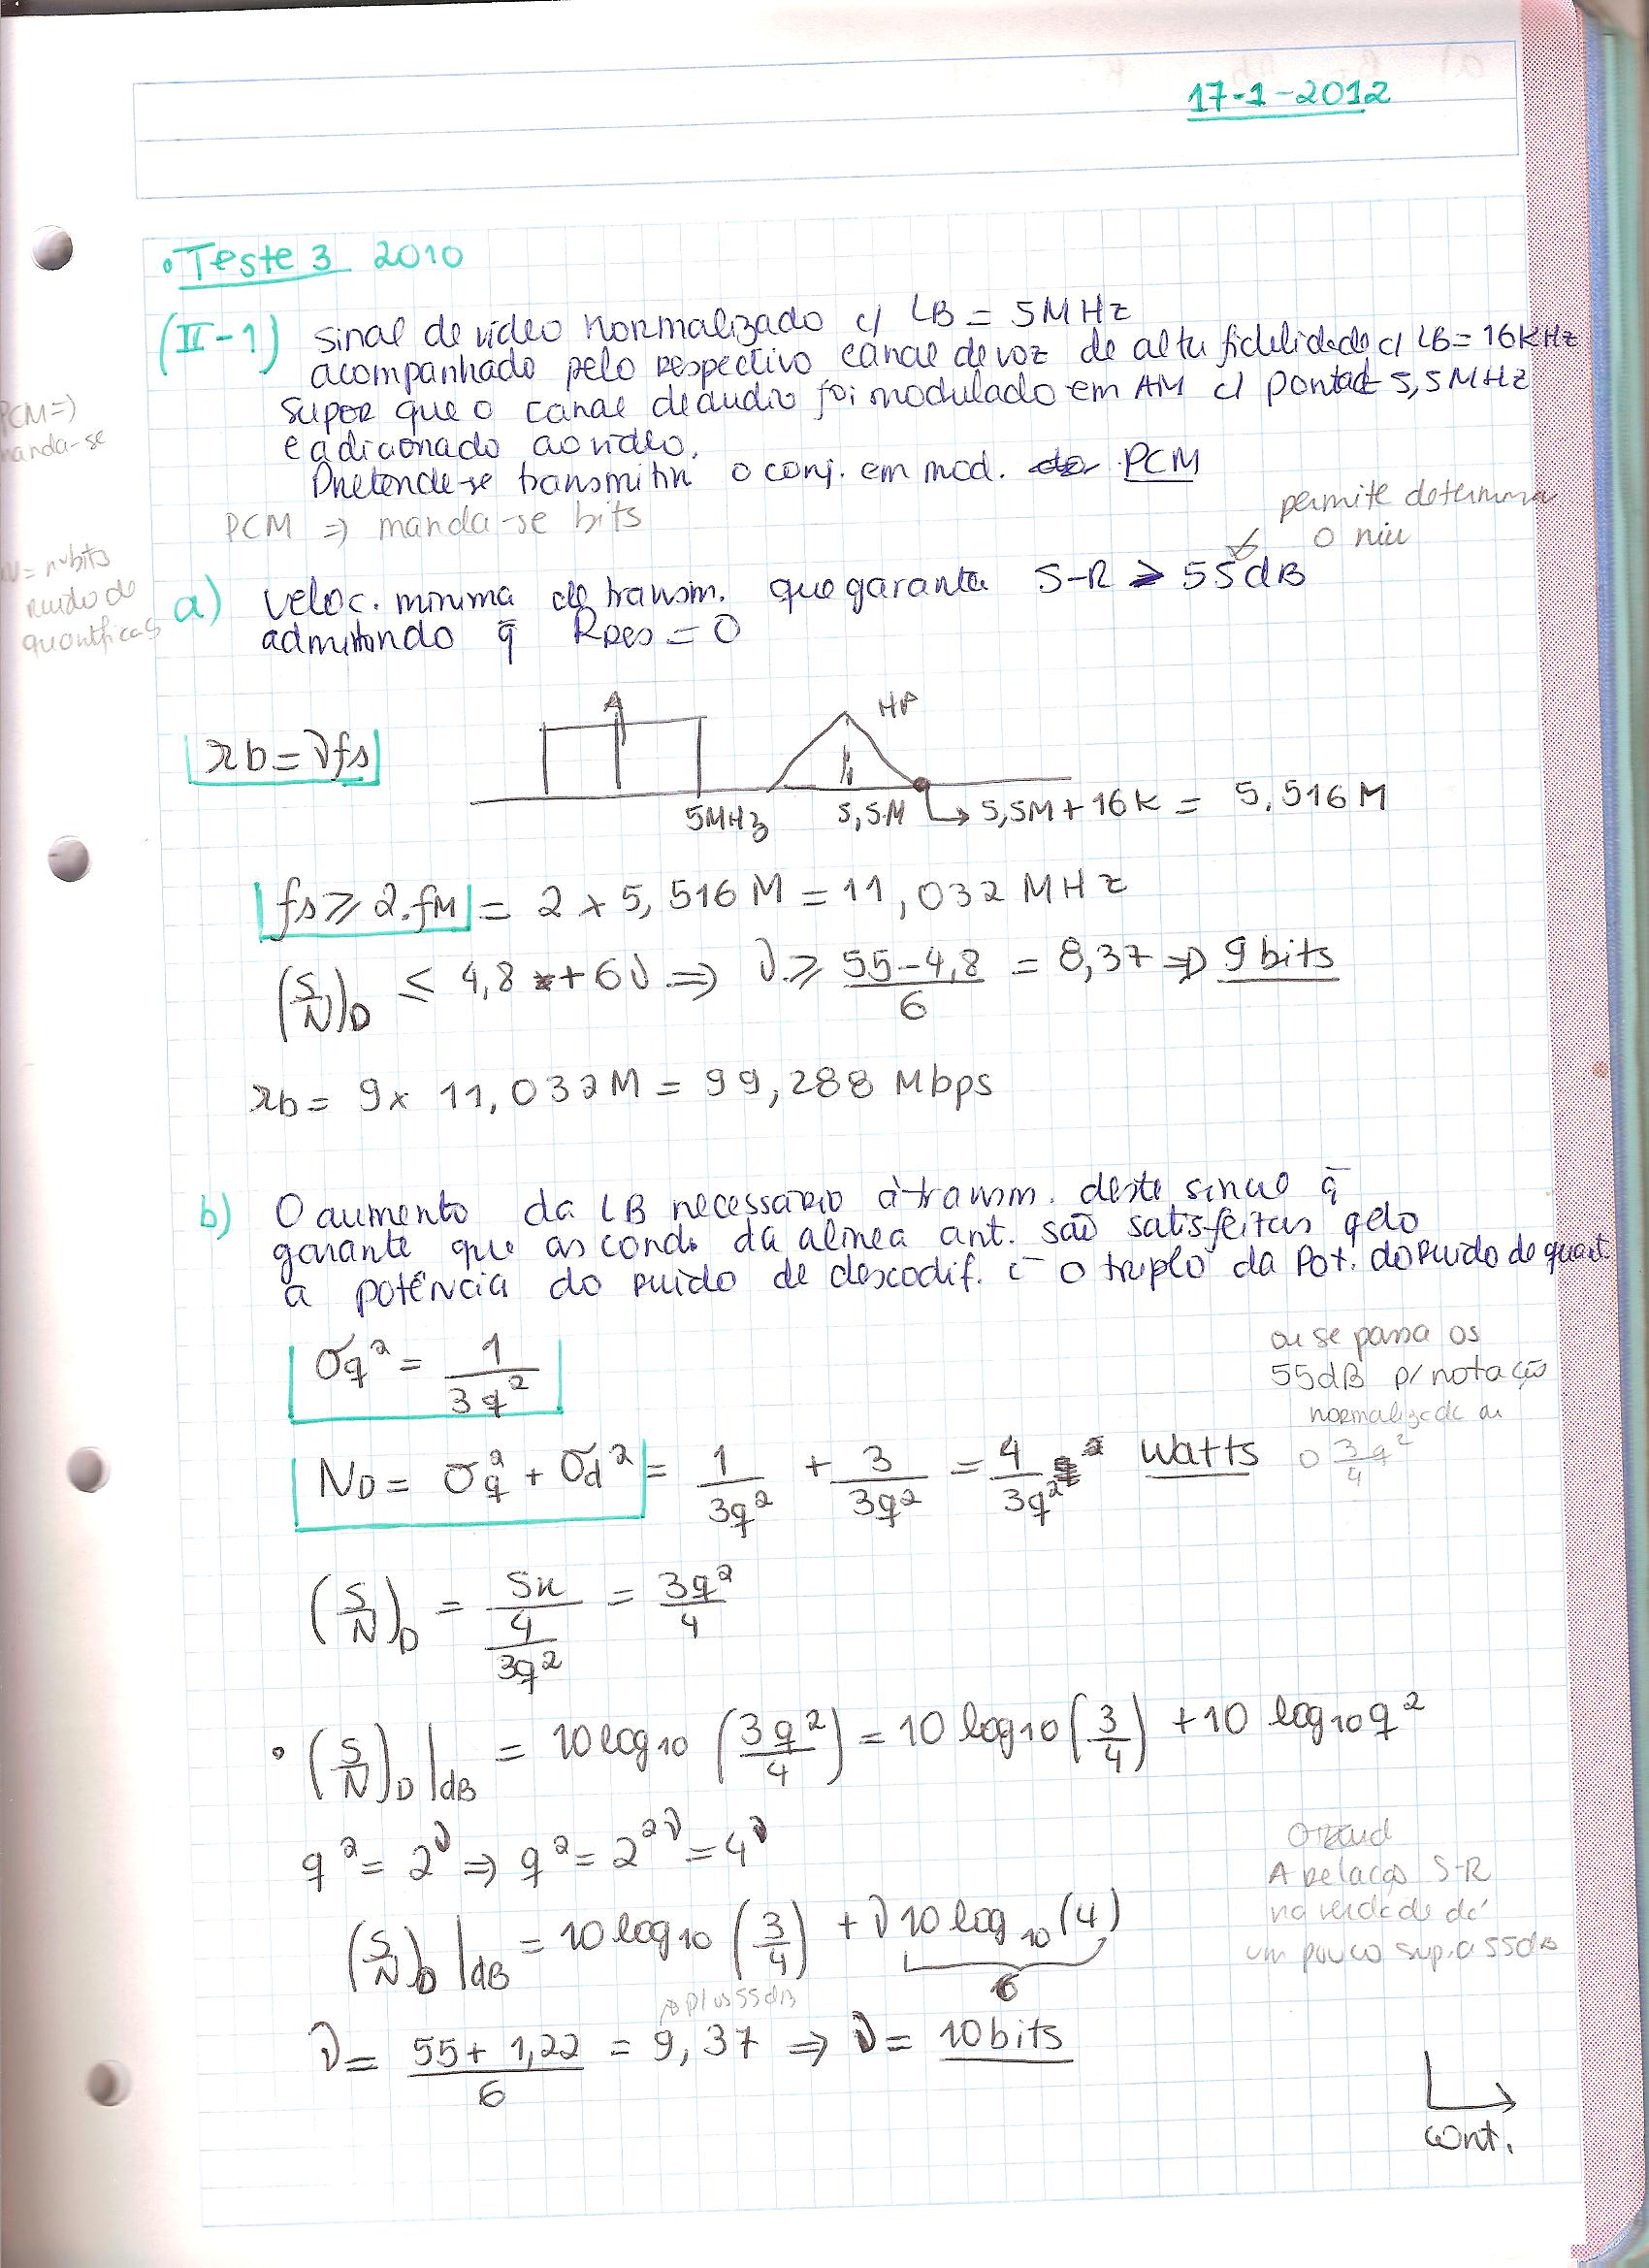 17-1-2012
• Teste 3 2010
(II-1) Sinal de vídeo normalizado c/ LB = 5MHz
acompanhado pelo respectivo canal de voz de alta fidelidade c/ LB = 16KHz
supor que o canal de audio foi modulado em AM c/ 5,5MHz
e adicionado ao vídeo.
Pretende-se transmitir o conj. em mod. PCM
PCM =>
manda-se
PCM => manda-se bits
permite determinar
o
= nº bits
ruido de
a) Veloc. mínima de transm. que garanta S-R ≥ 55dB
admitindo q̄ = 0
rb = νfs
5MHz 5,5M ↳ 5,5M + 16K = 5.516M
fs ≥ 2.fM = 2 x 5,516M = 11,032 MHz
(S/N)D ≤ 4,8 + 6ν => ν ≥ (55-4,8)/6 = 8,37 => 9 bits
rb = 9 x 11,032M = 99,288 Mbps
b) O aumento da LB necessário à transm. deste sinal q̄
garante que as cond. da alínea ant. são satisfeitas qdo
a potência do ruido de descodif. é o triplo da Pot. do ruido de quant.
σq² = 1/3q²
ou se passa os
55dB p/ notação
normalizada ou
o 3/4 q²
ND = σq² + σd² = 1/3q² + 3/3q² = 4/3q² Watts
(S/N)D = Sx/(4/3q²) = 3q²/4
• (S/N)D|dB = 10 log10 (3q²/4) = 10 log10 (3/4) + 10 log10 q²
q² = 2^ν => q² = 2^2ν = 4^ν
A relação S-R
na verdade dá
um pouco sup. a 55dB
(S/N)D|dB = 10 log10 (3/4) + ν 10 log10 (4)
6
p/ os 55dB
ν = (55 + 1,22)/6 = 9,37 => ν = 10 bits
cont.